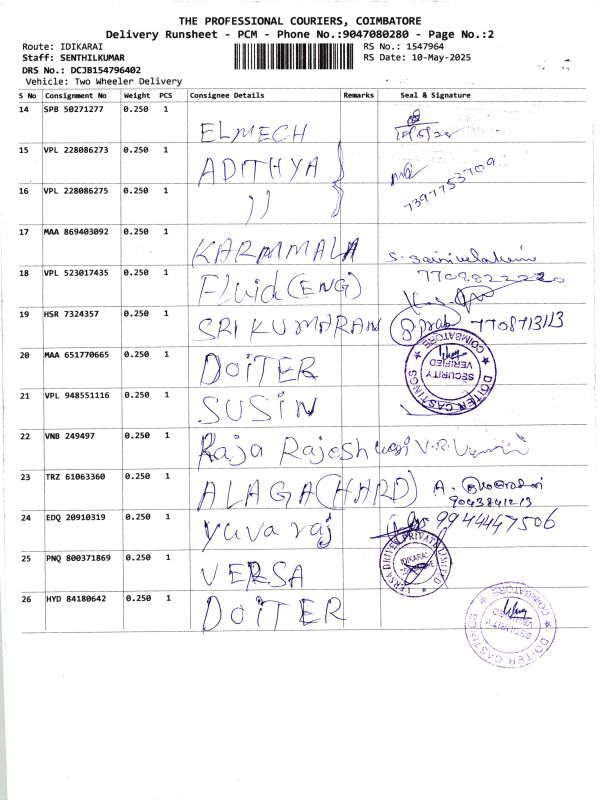 THE PROFESSIONAL COURIERS, COIMBATORE
Delivery Runsheet - PCM - Phone No.:9047080280 - Page No.:2
Route: IDIKARAI
RS No.: 1547964
Staff: SENTHILKUMAR
RS Date: 10-May-2025
DRS No.: DCJB154796402
Vehicle: Two Wheeler Delivery
S No Consignment No Weight PCS Consignee Details Remarks Seal & Signature
14 SPB 50271277 0.250 1
ELMECH
15 VPL 228086273 0.250 1
ADITHYA
16 VPL 228086275 0.250 1
))
7397753709
17 MAA 869403092 0.250 1
KARMMALA
18 VPL 523017435 0.250 1
7708822220
Fluid (ENG)
19 HSR 7324357 0.250 1
SRI KUMARAN
7708713113
20 MAA 651770665 0.250 1
DOiTER
DOITER CASTINGS COIMBATORE
SECURITY
VERIFIED
21 VPL 948551116 0.250 1
SUSiN
22 VNB 249497 0.250 1
Raja Rajeshwari
23 TRZ 61063360 0.250 1
ALAGA (HARD)
9043841213
24 EDQ 20910319 0.250 1
yuva raj
9944447506
25 PNQ 800371869 0.250 1
VERSA
VERSA DRIVES PRIVATE LIMITED
IDIKARAI
26 HYD 84180642 0.250 1
DOiTER
DOITER CASTINGS COIMBATORE
SECURITY
VERIFIED